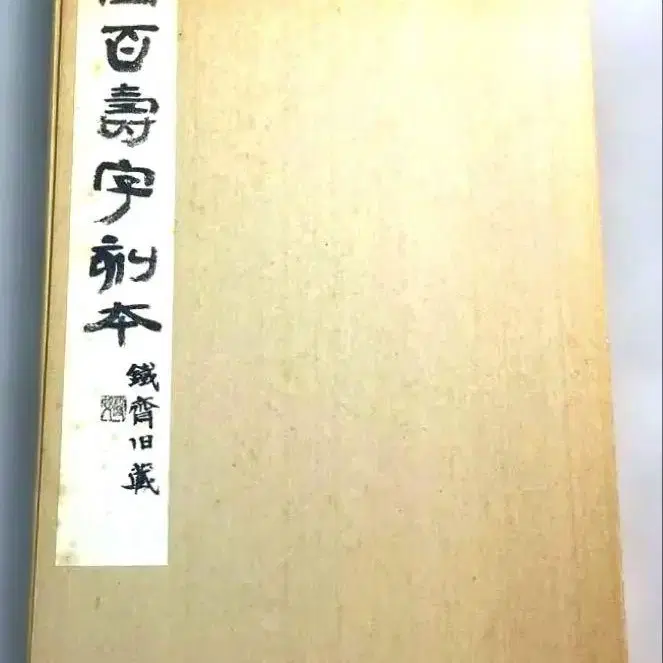 百壽字刻本
鐵齊旧藏